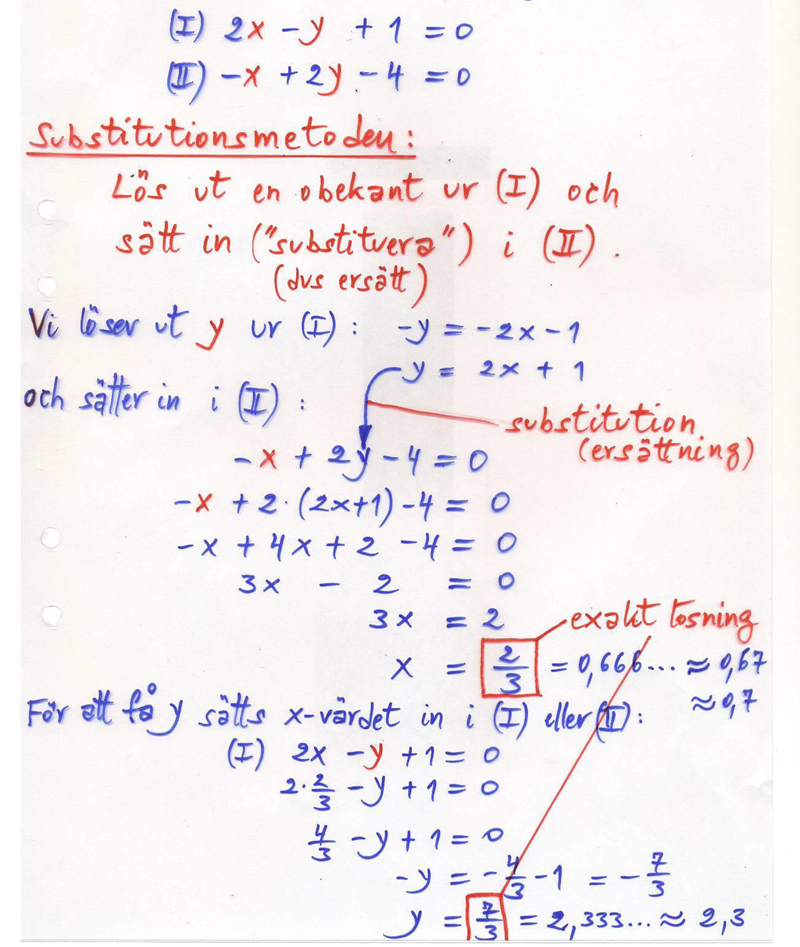 (I) 2x - y + 1 = 0
(II) -x + 2y - 4 = 0
Substitutionsmetoden:
Lös ut en obekant ur (I) och
sätt in ("substituera") i (II).
(dvs ersätt)
Vi löser ut y ur (I): -y = -2x - 1
y = 2x + 1
och sätter in i (II):
substitution
(ersättning)
-x + 2y - 4 = 0
-x + 2·(2x+1) - 4 = 0
-x + 4x + 2 - 4 = 0
3x - 2 = 0
3x = 2
exakt losning
x = 2/3 = 0,666... ≈ 0,67
≈ 0,7
För att få y sätts x-värdet in i (I) eller (II):
(I) 2x - y + 1 = 0
2·2/3 - y + 1 = 0
4/3 - y + 1 = 0
-y = -4/3 - 1 = -7/3
y = 7/3 = 2,333... ≈ 2,3